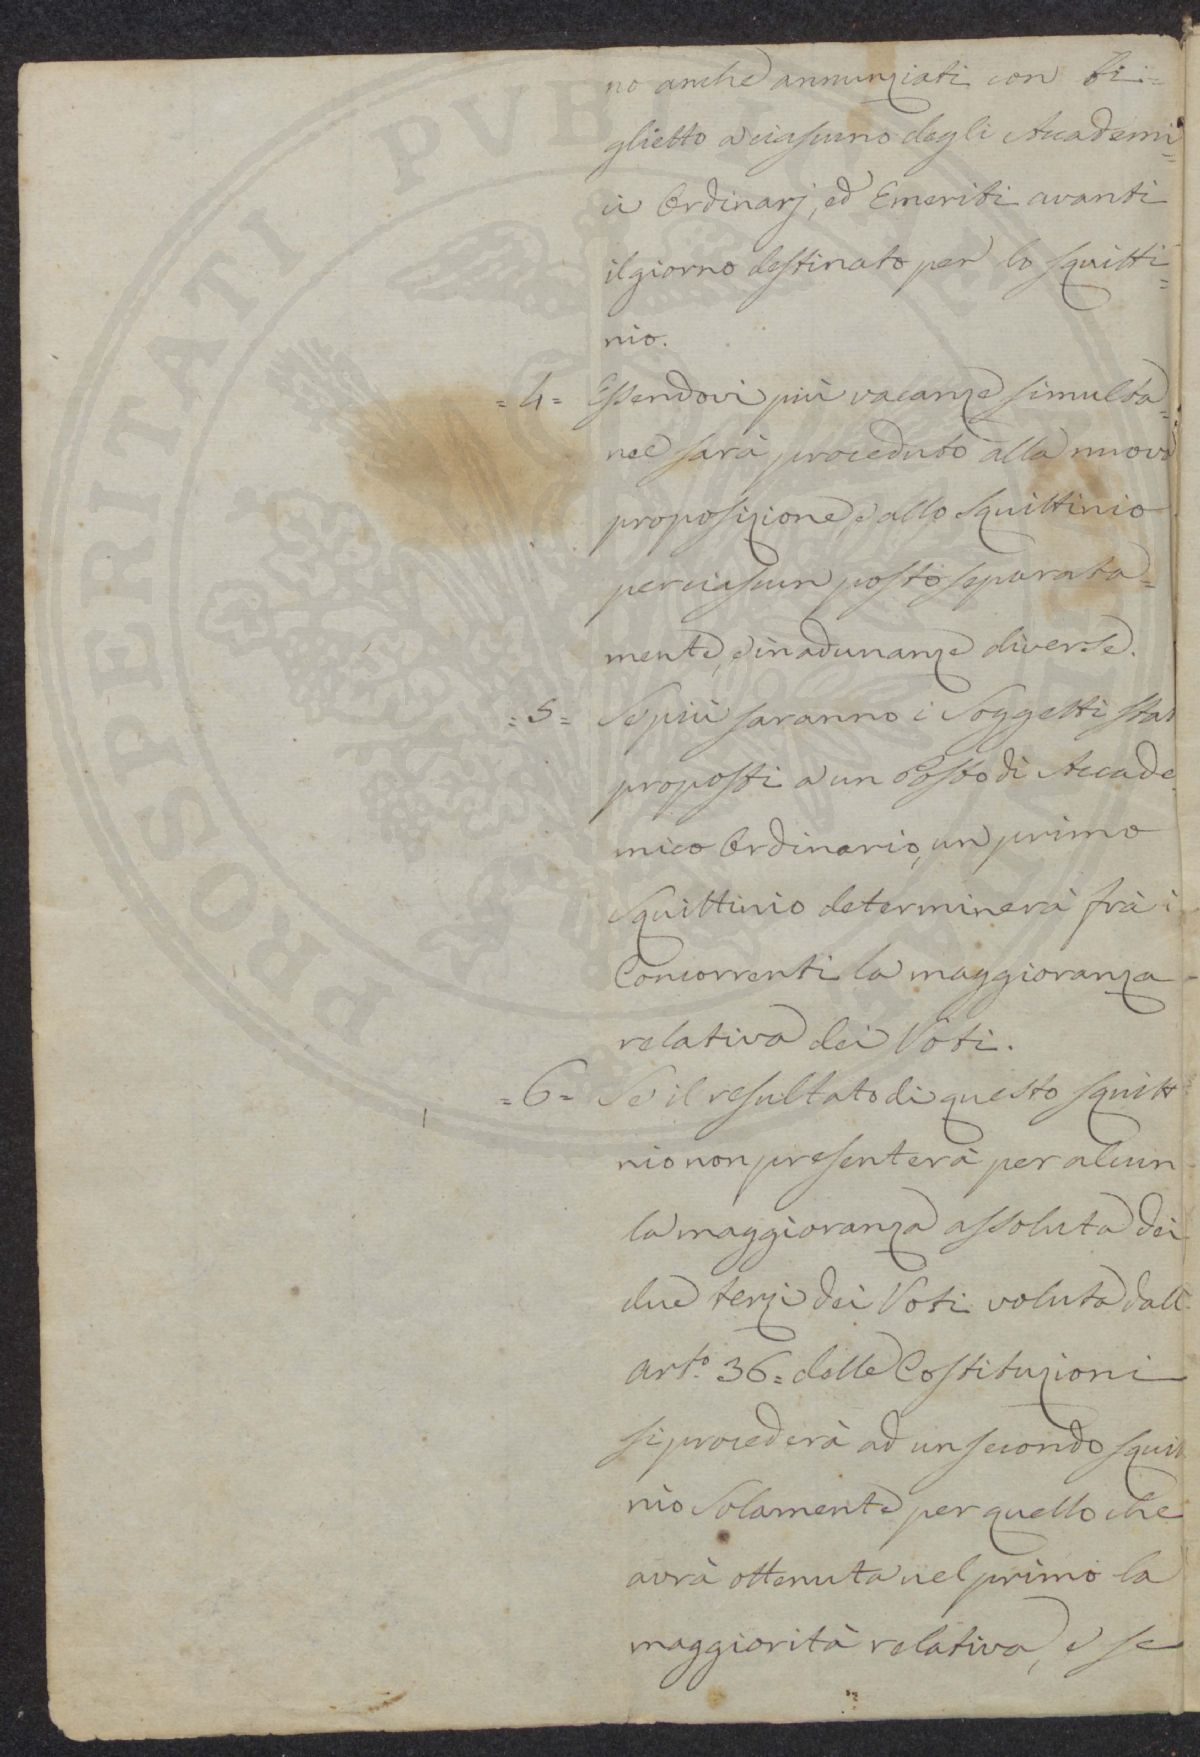 no anche annunziati con Bi=
glietto a ciascuno degli Accademi=
ci Ordinarj, ed Emeriti avanti
il giorno destinato per lo squitti=
nio.
=4= Essendovi più vacanze simulta=
nee sarà proceduto alla nuova
proposizione, e allo Squittinio
per ciascun posto separata=
mente, e in adunanze diverse.
=5= Se più saranno i Soggetti stati
proposti a un Posto di Accade
mico Ordinario, un primo
Squittinio determinerà frà i
Concorrenti la maggioranza
relativa dei Voti.
=6= Se il resultato di questo squitt
nio non presenterà per alcun
la maggioranza assoluta dei
due terzi dei Voti voluta dall
art.º 36= delle Costituzioni
si procederà ad un secondo squit
nio Solamente per quello che
avrà ottenuta nel primo la
maggiorità relativa, e se
PROSPERITATI PUBLICAE